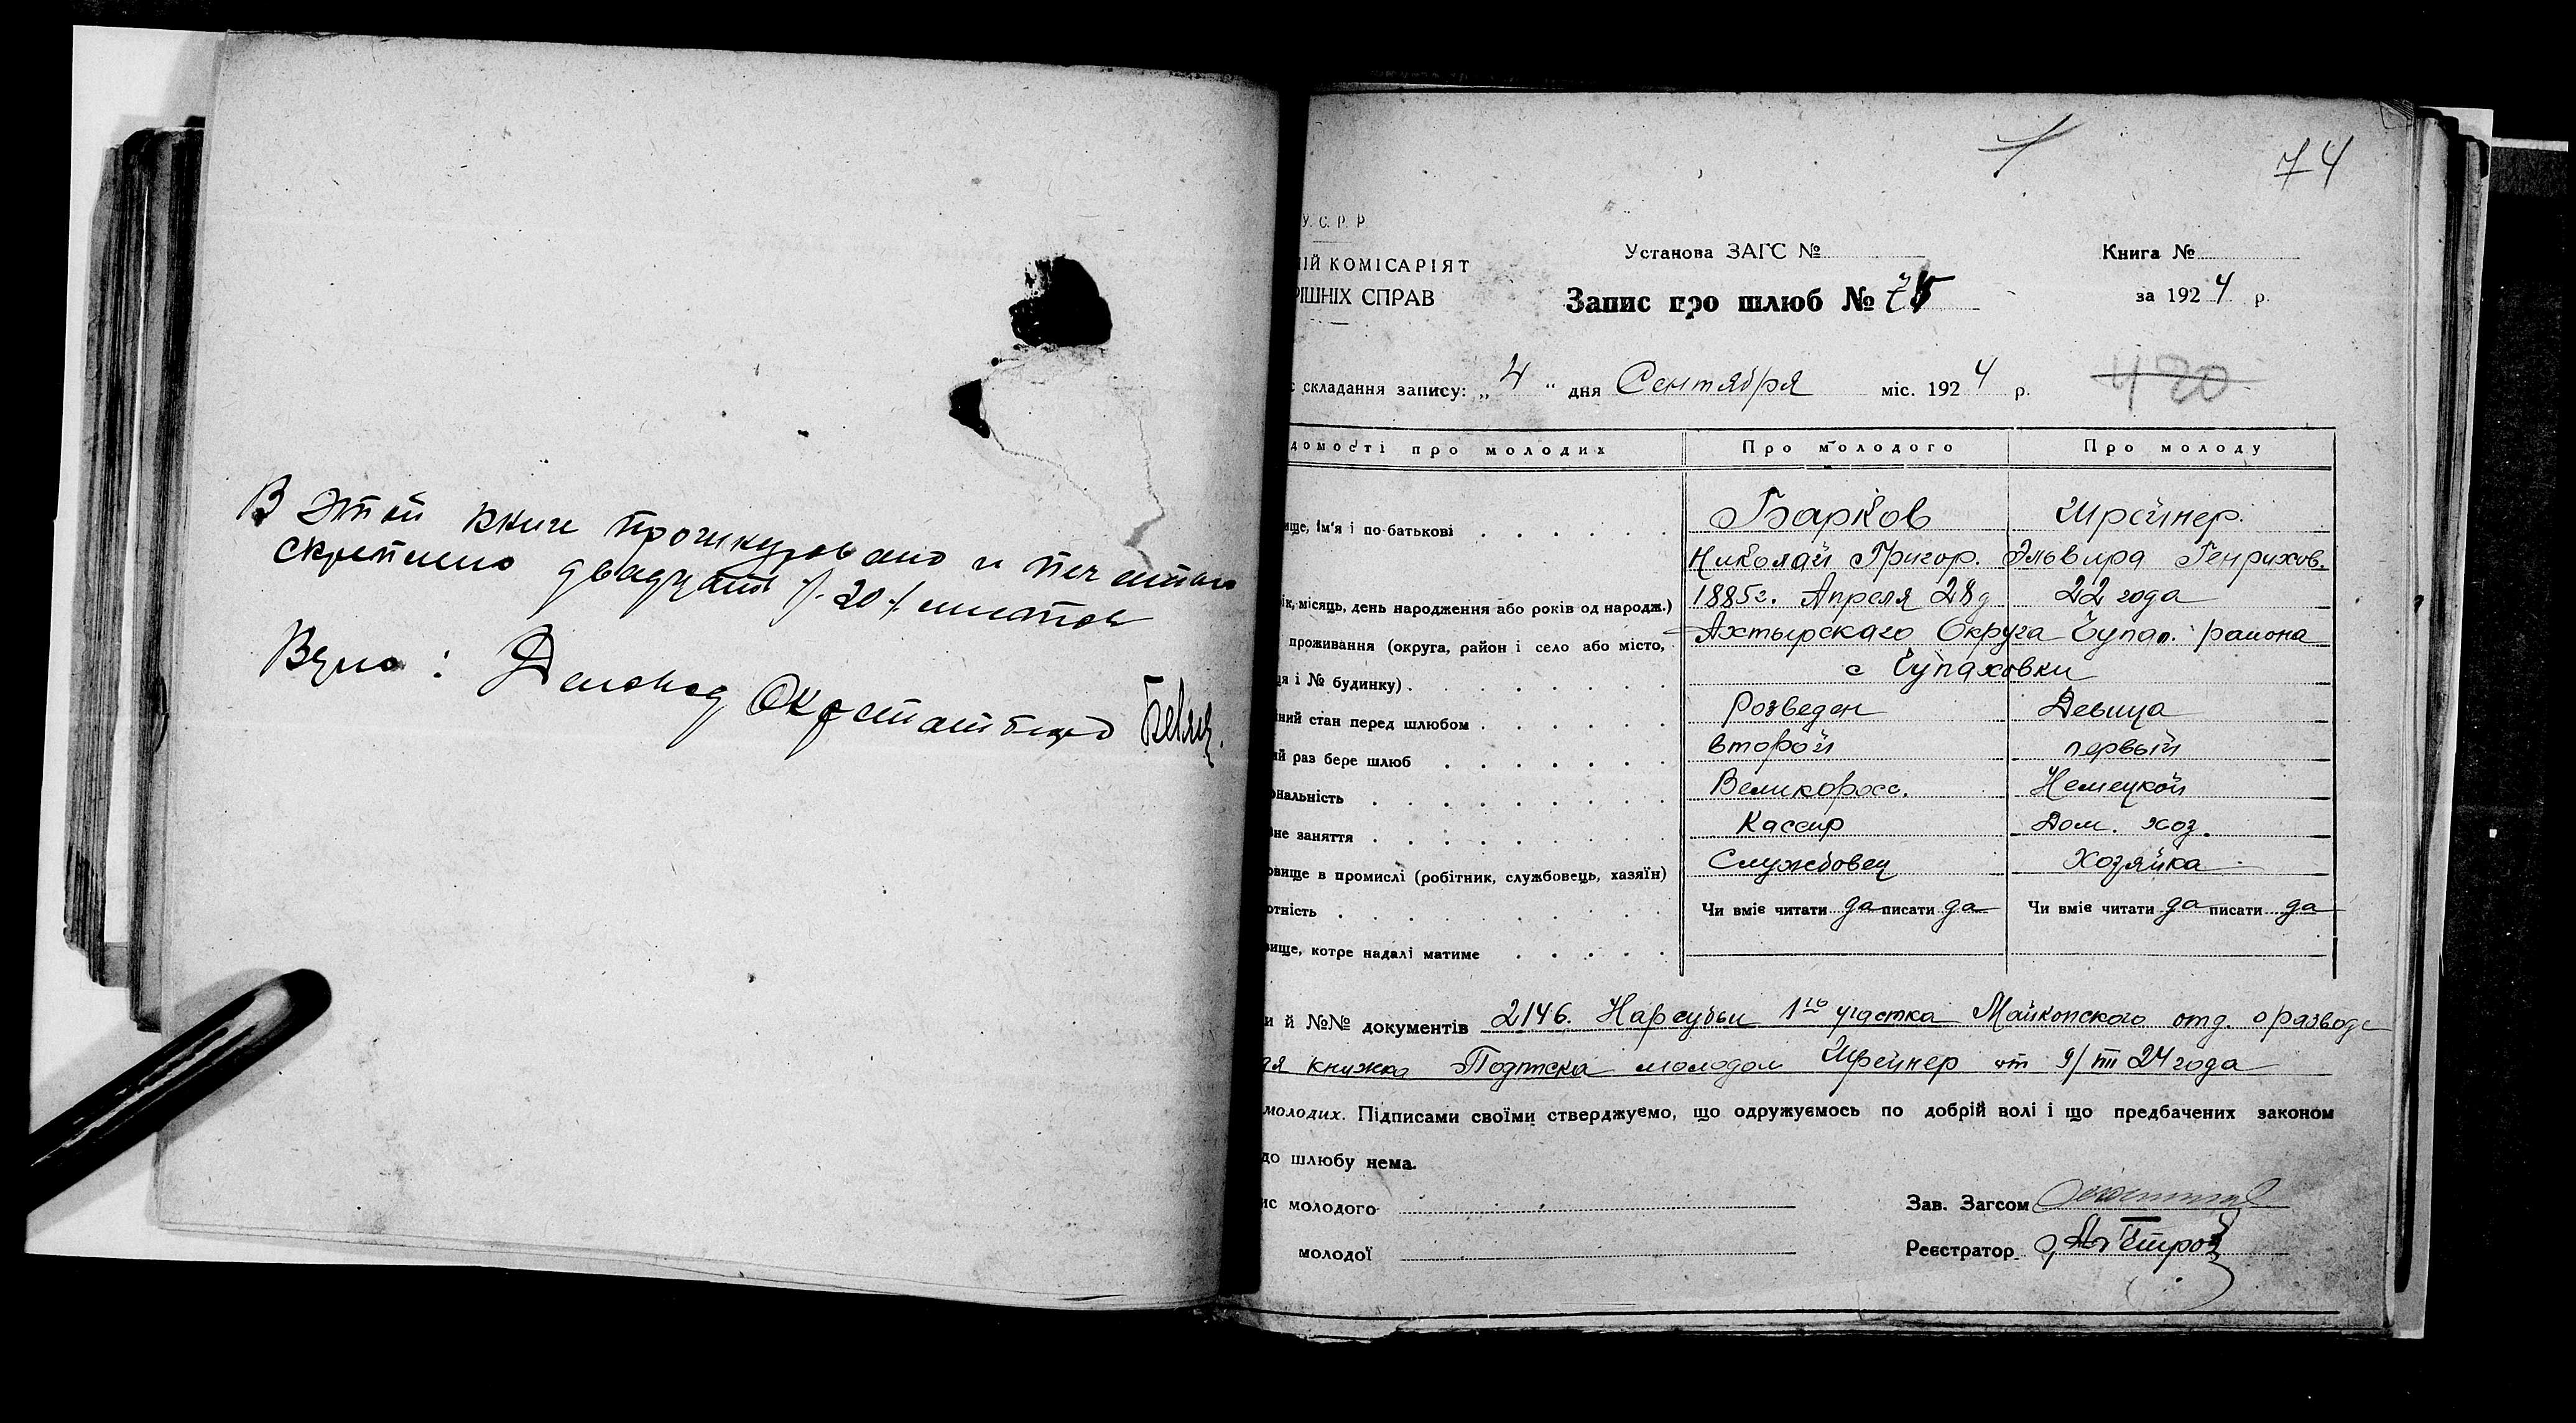 В этой книге пронумеровано и печатью
скреплено двадцать /-20-/ листов
Верно: Деловод Окрстатбюро
74
У. С. Р. Р
ІЙ КОМІСАРІЯТ
РІШНІХ СПРАВ
Установа ЗАГС №
Запис про шлюб № 75
Книга №
за 1924 р.
складання запису: „4“ дня Сентября міс. 1924 р.
420
домості про молодих Про молодого Про молоду
ище, ім'я і по-батькові Барков Шрейнер.
Николай Григор. Эльвира Генрихов.
ік, місяць, день народження або років од народж.) 1885г. Апреля 28д 22 года
проживання (округа, район і село або місто, Ахтырскаго Округа Чупах. района
ця і № будинку) с Чупаховки
ний стан перед шлюбом Розведен Девица
ий раз бере шлюб второй первый
ональність Великоросс. Немецкой
не заняття Кассир Дом. хоз.
овище в промислі (робітник, службовець, хазяїн) Службовец Хозяйка
отність Чи вміє читати да писати да Чи вміє читати да писати да
вище, котре надалі матиме
и й №№ документів 2146. Нарсудьи 1го участка Майкопского отд. о разводе
книжка Подписка молодой Шрейнер от 9/VIII 24 года
молодих. Підписами своїми стверджуємо, що одружуємось по добрій волі і що предбачених законом
до шлюбу нема.
ис молодого
Зав. Загсом
молодої
Реєстратор Петров